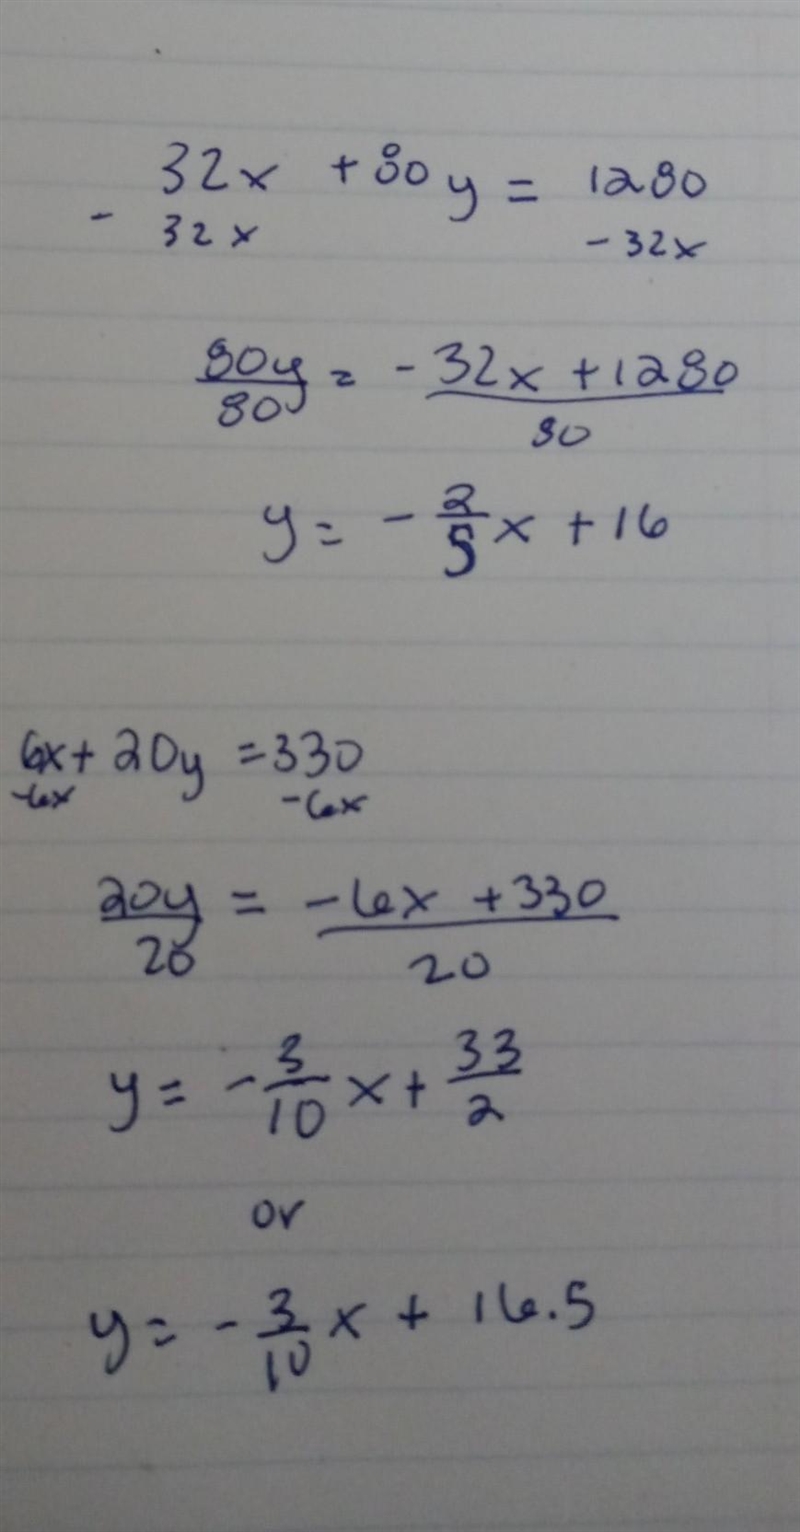 32x + 80y = 1280
- 32x - 32x
80y/80 = - 32x + 1280/80
y = - 2/5 x + 16
6x + 20y = 330
-6x -6x
20y/20 = -6x + 330/20
y = - 3/10 x + 33/2
or
y = - 3/10 x + 16.5